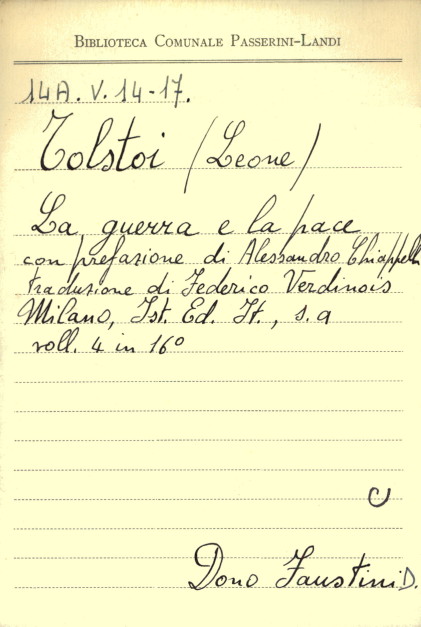 BIBLIOTECA COMUNALE PASSERINI-LANDI
14A. V. 14-17.
Tolstoi (Leone)
La guerra e la pace
con prefazione di Alessandro Chiappelli
traduzione di Federico Verdinois
Milano, Ist. Ed. It., s. a
voll. 4 in 16°
C
Dono Faustini D.